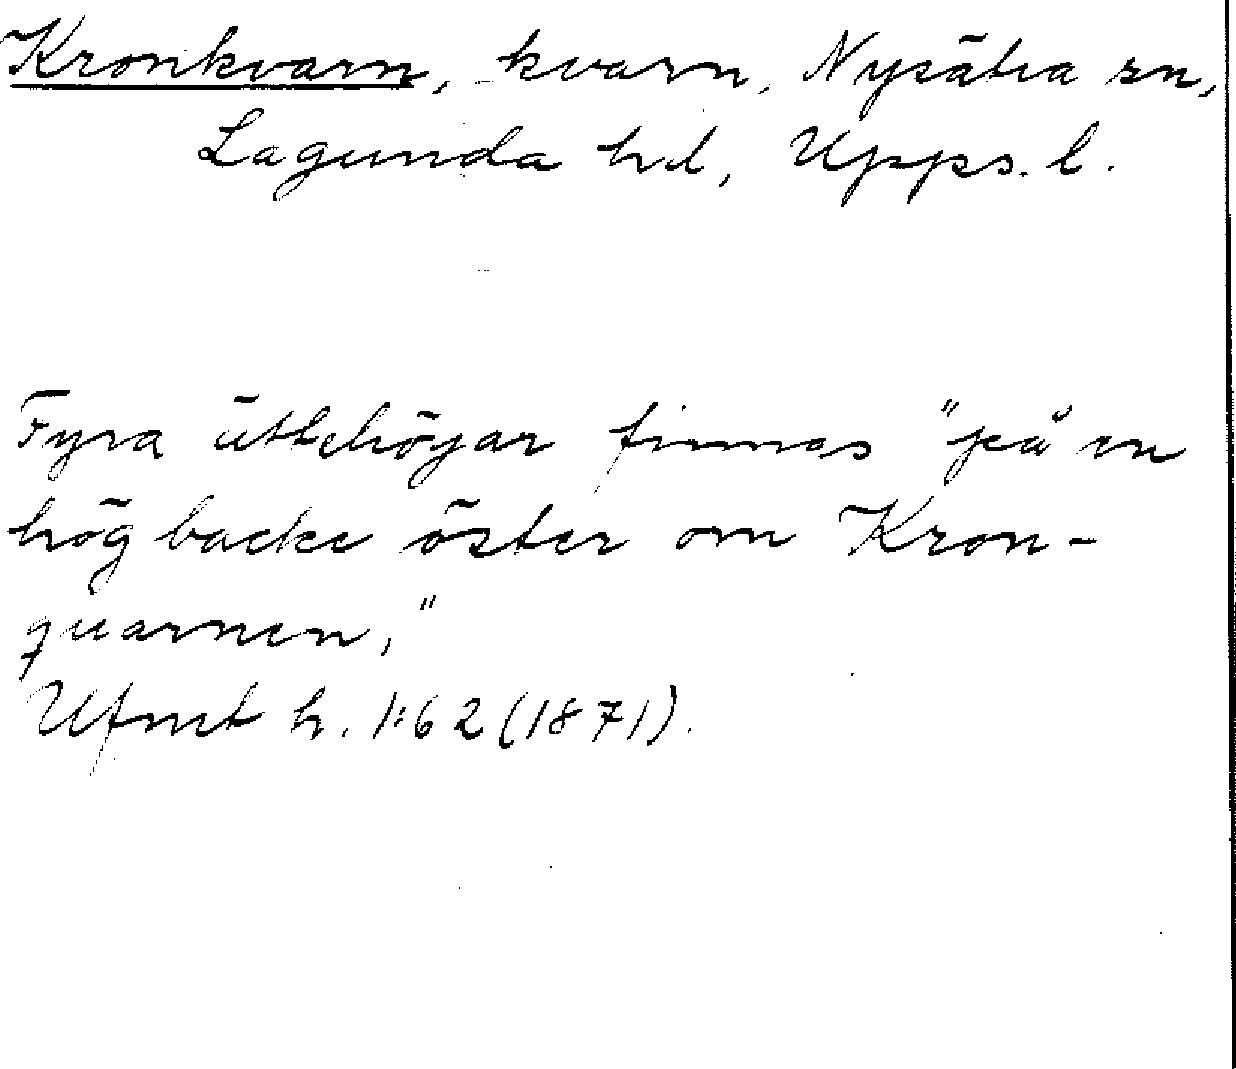 Kronkvarn, kvarn, Nysätra sn,
Lagunda hd, Upps. l.
Fyra ättehögar finnas "på en
hög backe öster om Kron-
quarnen,"
Ufmt h. 1:62 (1871).